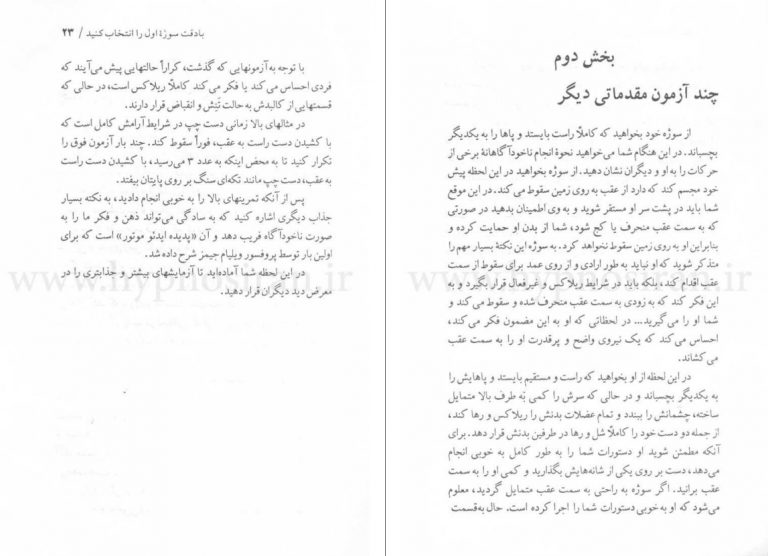 بادقت سوژهٔ اول را انتخاب کنید / ۲۳
با توجه به آزمونهایی که گذشت، کراراً حالتهایی پیش می‌آیند که
فردی احساس می‌کند یا فکر می‌کند کاملاً ریلاکس است، در حالی که
قسمتهایی از کالبدش به حالت تَنِش و انقباض قرار دارند.
در مثالهای بالا زمانی دست چپ در شرایط آرامش کامل است که
با کشیدن دست راست به عقب، فوراً سقوط کند. چند بار آزمون فوق را
تکرار کنید تا به محض اینکه به عدد ۳ می‌رسید، با کشیدن دست راست
به عقب، دست چپ مانند تکه‌ای سنگ بر روی پایتان بیفتد.
پس از آنکه تمرینهای بالا را به خوبی انجام دادید، به نکته بسیار
جذاب دیگری اشاره کنید که به سادگی می‌تواند ذهن و فکر ما را به
صورت ناخودآگاه فریب دهد و آن «پدیده ایدئو موتور» است که برای
اولین بار توسط پروفسور ویلیام جیمز شرح داده شد.
در این لحظه شما آماده‌اید تا آزمایشهای بیشتر و جذابتری را در
معرض دید دیگران قرار دهید.
www.hypnosisran.ir
بخش دوم
چند آزمون مقدماتی دیگر
از سوژه خود بخواهید که کاملاً راست بایستد و پاها را به یکدیگر
بچسباند. در این هنگام شما می‌خواهید نحوهٔ انجام ناخودآگاهانهٔ برخی از
حرکات را به او و دیگران نشان دهید. از سوژه بخواهید در این لحظه پیش
خود مجسم کند که دارد از عقب به روی زمین سقوط می‌کند. در این موقع
شما باید در پشت سر او مستقر شوید و به وی اطمینان بدهید در صورتی
که به سمت عقب منحرف یا کج شود، شما از بدن او حمایت کرده و
بنابراین او به روی زمین سقوط نخواهد کرد. به سوژه این نکتهٔ بسیار مهم را
متذکر شوید که او نباید به طور ارادی و از روی عمد برای سقوط از سمت
عقب اقدام کند، بلکه باید در شرایط ریلاکس و غیرفعال قرار بگیرد و به
این فکر کند که به زودی به سمت عقب منحرف شده و سقوط می‌کند و
شما او را می‌گیرید... در لحظاتی که او به این مضمون فکر می‌کند،
احساس می‌کند که یک نیروی واضح و پرقدرت او را به سمت عقب
می‌کشاند.
در این لحظه از او بخواهید که راست و مستقیم بایستد و پاهایش را
به یکدیگر بچسباند و در حالی که سرش را کمی به طرف بالا متمایل
ساخته، چشمانش را ببندد و تمام عضلات بدنش را ریلاکس و رها کند،
از جمله دو دست خود را کاملاً شل و رها در طرفین بدنش قرار دهد. برای
آنکه مطمئن شوید او دستورات شما را به طور کامل به خوبی انجام
می‌دهد، دست بر روی یکی از شانه‌هایش بگذارید و کمی او را به سمت
عقب برانید. اگر سوژه به راحتی به سمت عقب متمایل گردید، معلوم
می‌شود که او به خوبی دستورات شما را اجرا کرده است. حال به‌قسمت